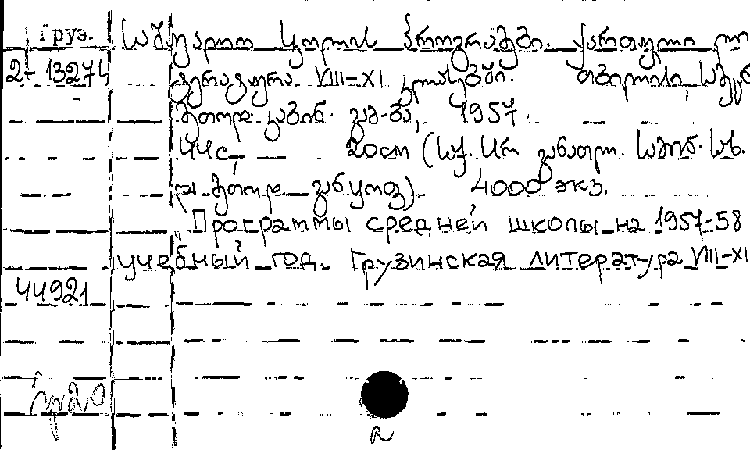 Груз. საშუალო სკოლის პროგრამები. ქართული ლი
2-13274 ტერატურა VIII-XI კლასებში. თბილისი სამეც
მეთოდ. კაბინ. გამ-ბა, 1957
44с. 20см (საქ. სსრ განათლ. სამინ. სას.
და მეთოდ. განყოფ). 4000 экз.
Программы средней школы на 1957-58
учебный год. Грузинская литература VIII-XI
44921